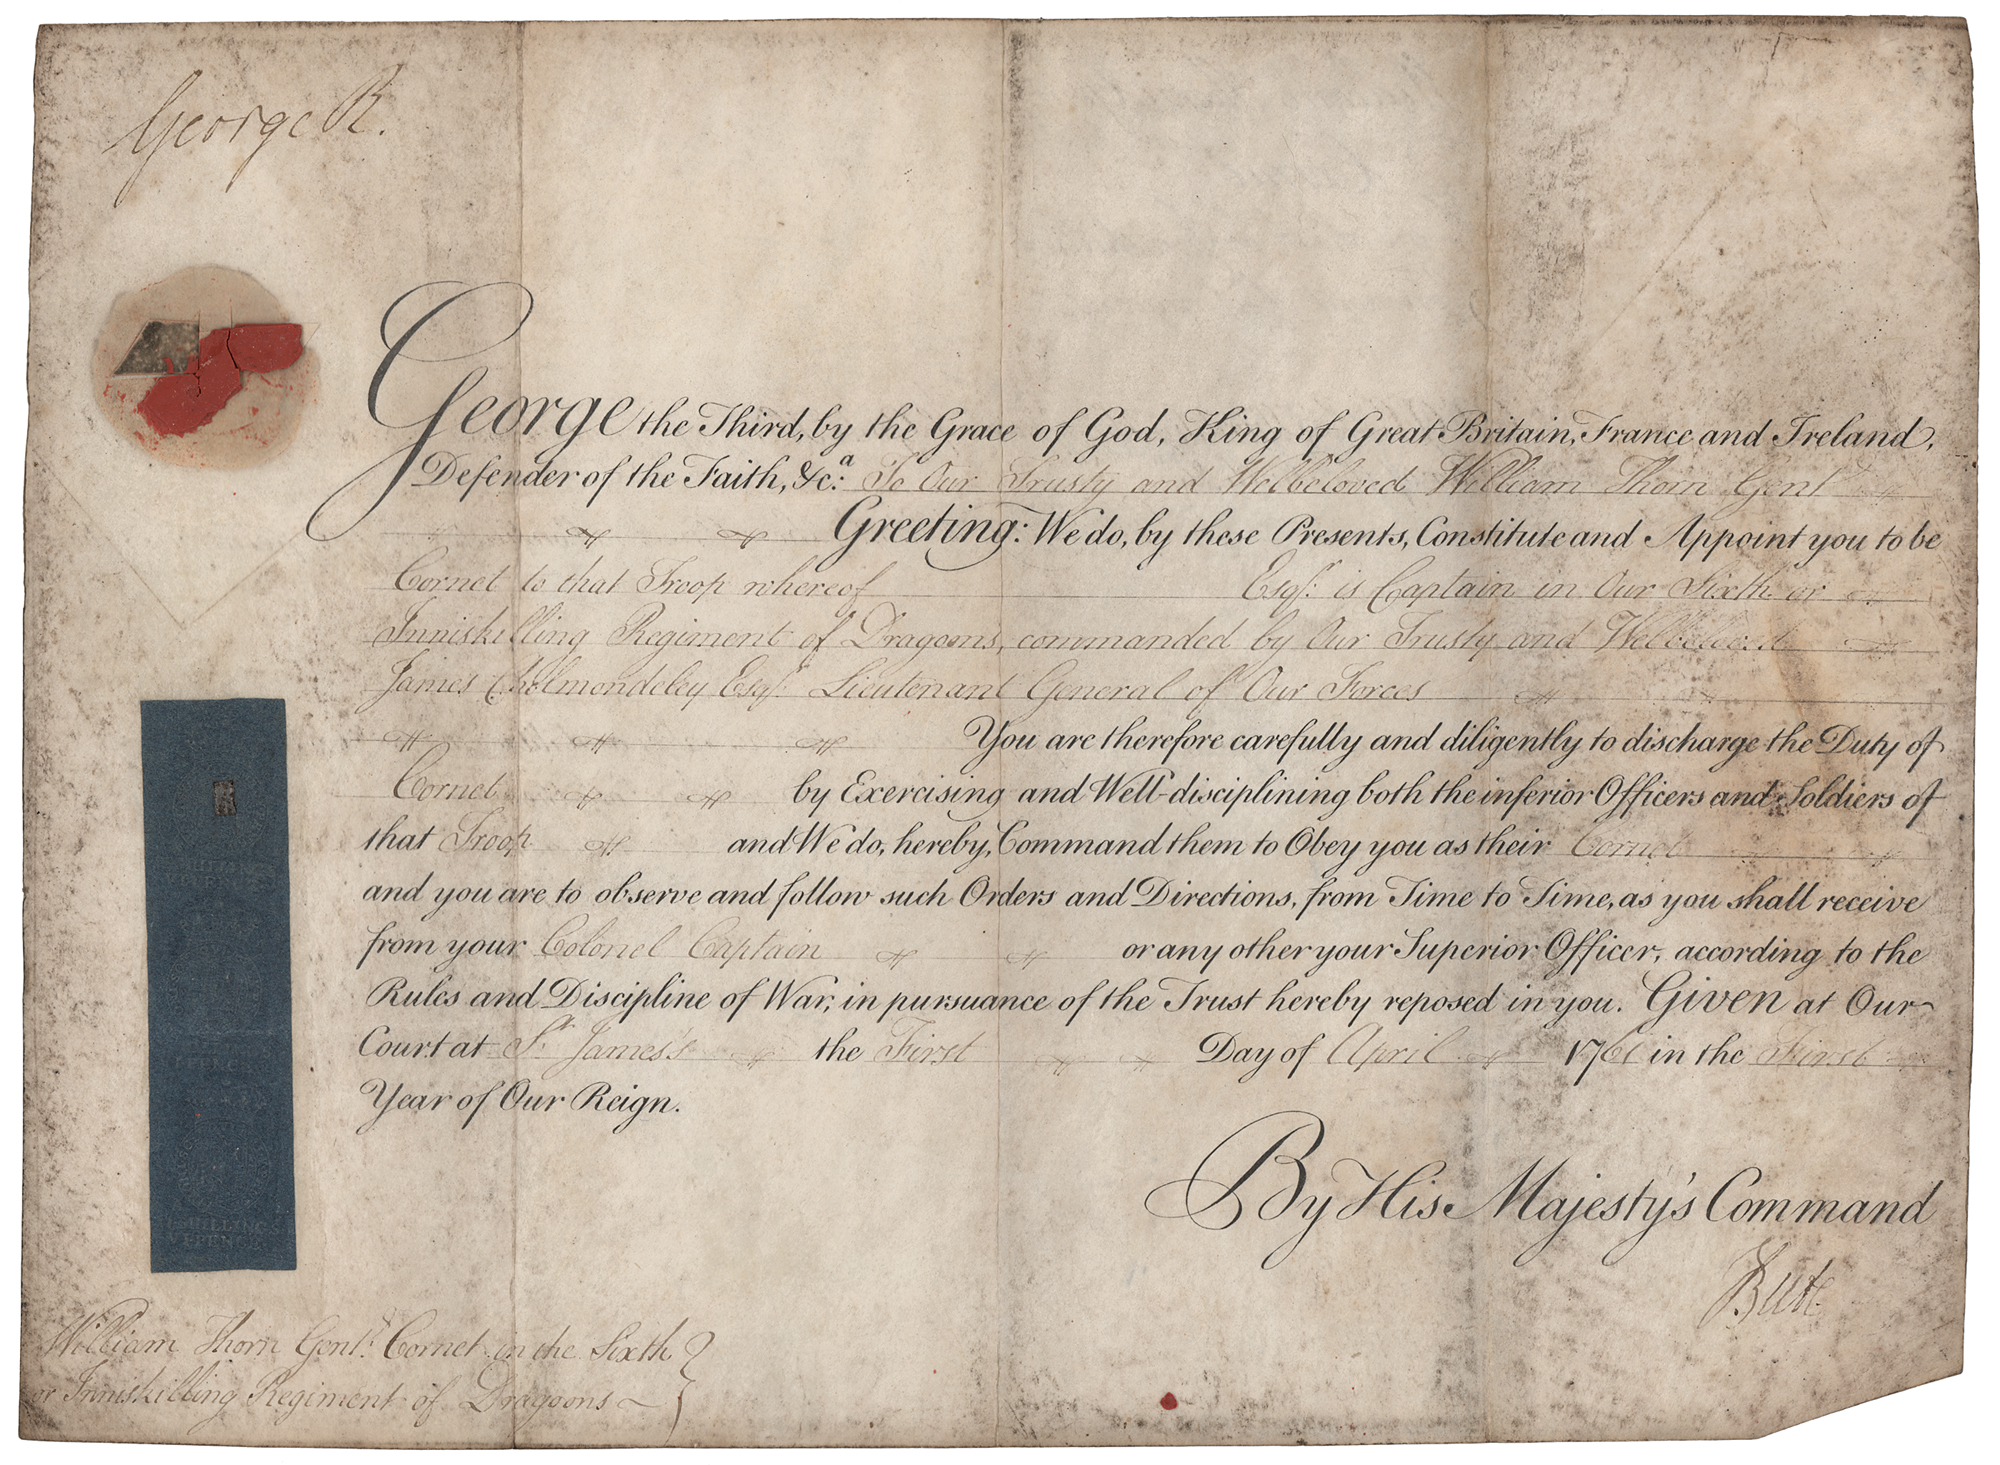 George R.
George the Third, by the Grace of God, King of Great Britain, France and Ireland,
Defender of the Faith, &c.a To Our Trusty and Welbeloved William Thorn Gent.
Greeting: We do, by these Presents, Constitute and Appoint you to be
Cornet to that Troop whereof Esqr. is Captain in Our Sixth or
Inniskilling Regiment of Dragoons, commanded by Our Trusty and Welbeloved
James Cholmondeley Esqr. Lieutenant General of Our Forces
You are therefore carefully and diligently to discharge the Duty of
Cornet by Exercising and Well-disciplining both the inferior Officers and Soldiers of
that Troop and We do, hereby, Command them to Obey you as their Cornet
and you are to observe and follow such Orders and Directions, from Time to Time, as you shall receive
from your Colonel Captain or any other your Superior Officer, according to the
Rules and Discipline of War, in pursuance of the Trust hereby reposed in you. Given at Our
Court at St. James's the First Day of April 1761 in the First
Year of Our Reign.
By His Majesty's Command
Bute
SHILLINGS
PENCE
William Thorn Gent. Cornet in the Sixth
or Inniskilling Regiment of Dragoons